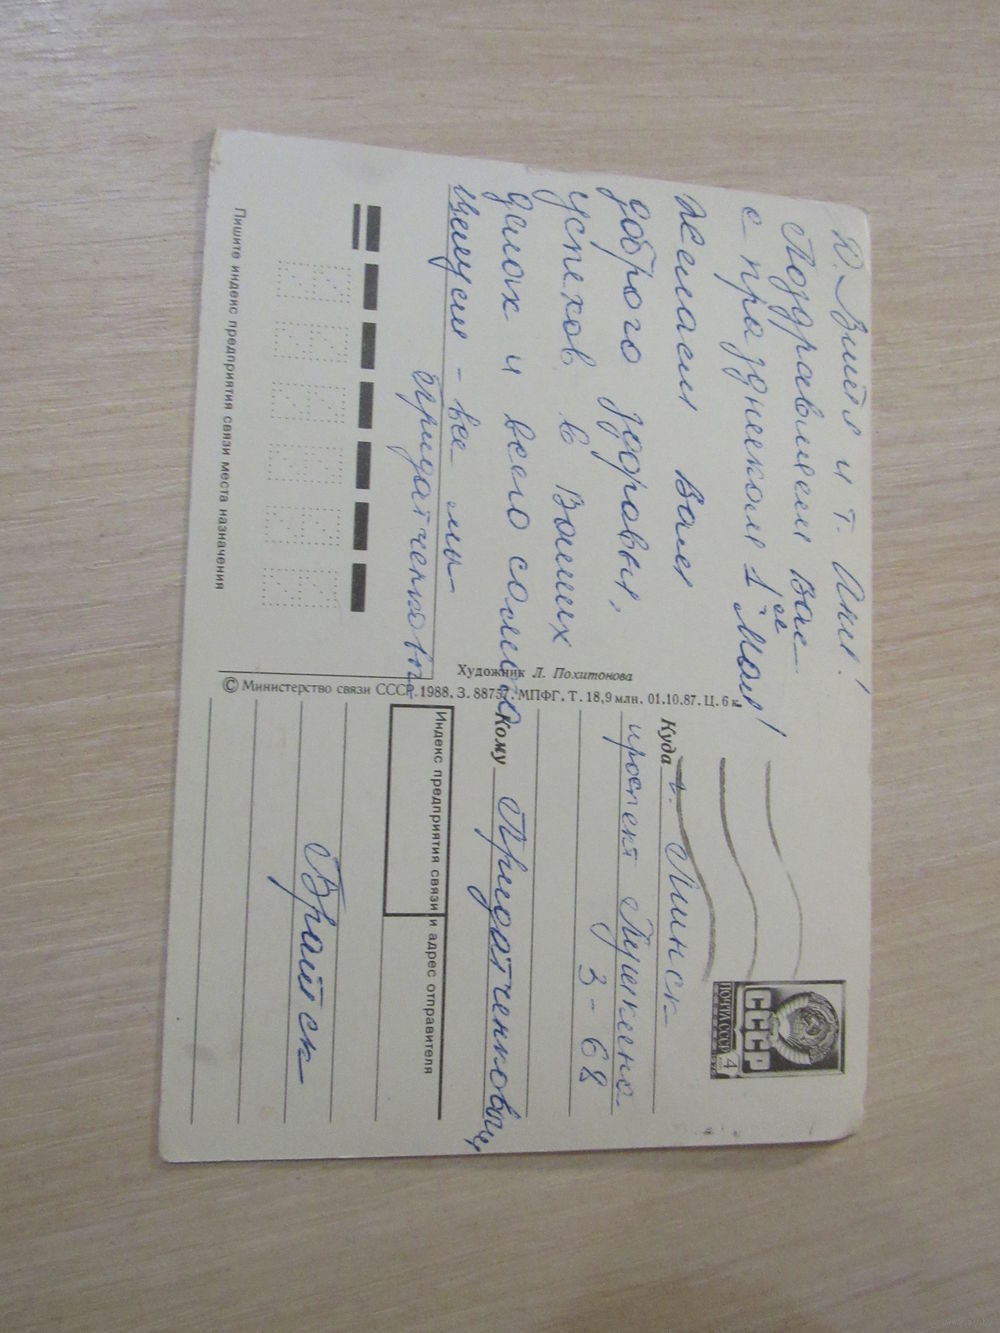 Д. Витя и т. Аня!
Поздравляем Вас
с праздником 1ое Мая!
Желаем Вам
доброго здоровья,
успехов в Ваших
делах и всего самого
Целуем - все мы
Придатченковы
Пишите индекс предприятия связи места назначения
Художник Л. Похитонова
© Министерство связи СССР. 1988. З. 88757. МПФГ. Т. 18,9 млн. 01.10.87. Ц. 6 к.
ПОЧТА СССР 4
СССР
Куда г. Минск
проспект Пушкина
3-68
Кому Придатченковы
Индекс предприятия связи и адрес отправителя
Братск